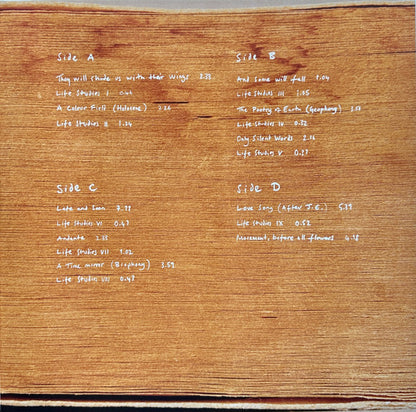 Side A
They will shade us with their wings 3.33
Life Studies I 0.44
A Colour Field (Holocene) 2.26
Life Studies II 1.34
Side B
And some will fall 7.04
Life Studies III 1.05
The Poetry of Earth (Geophony)
Life Studies IV 0.52
Only Silent Words 2.16
Life Studies V 0.57
Side C
Late and Soon
Life Studies VI 0.47
Andante 2.55
Life Studies VII 1.02
A Time mirror (Biophony) 3.59
Life Studies VIII 0.47
Side D
Love Song (After J.E.) 5.39
Life Studies IX 0.52
Movement, before all flowers 4.18